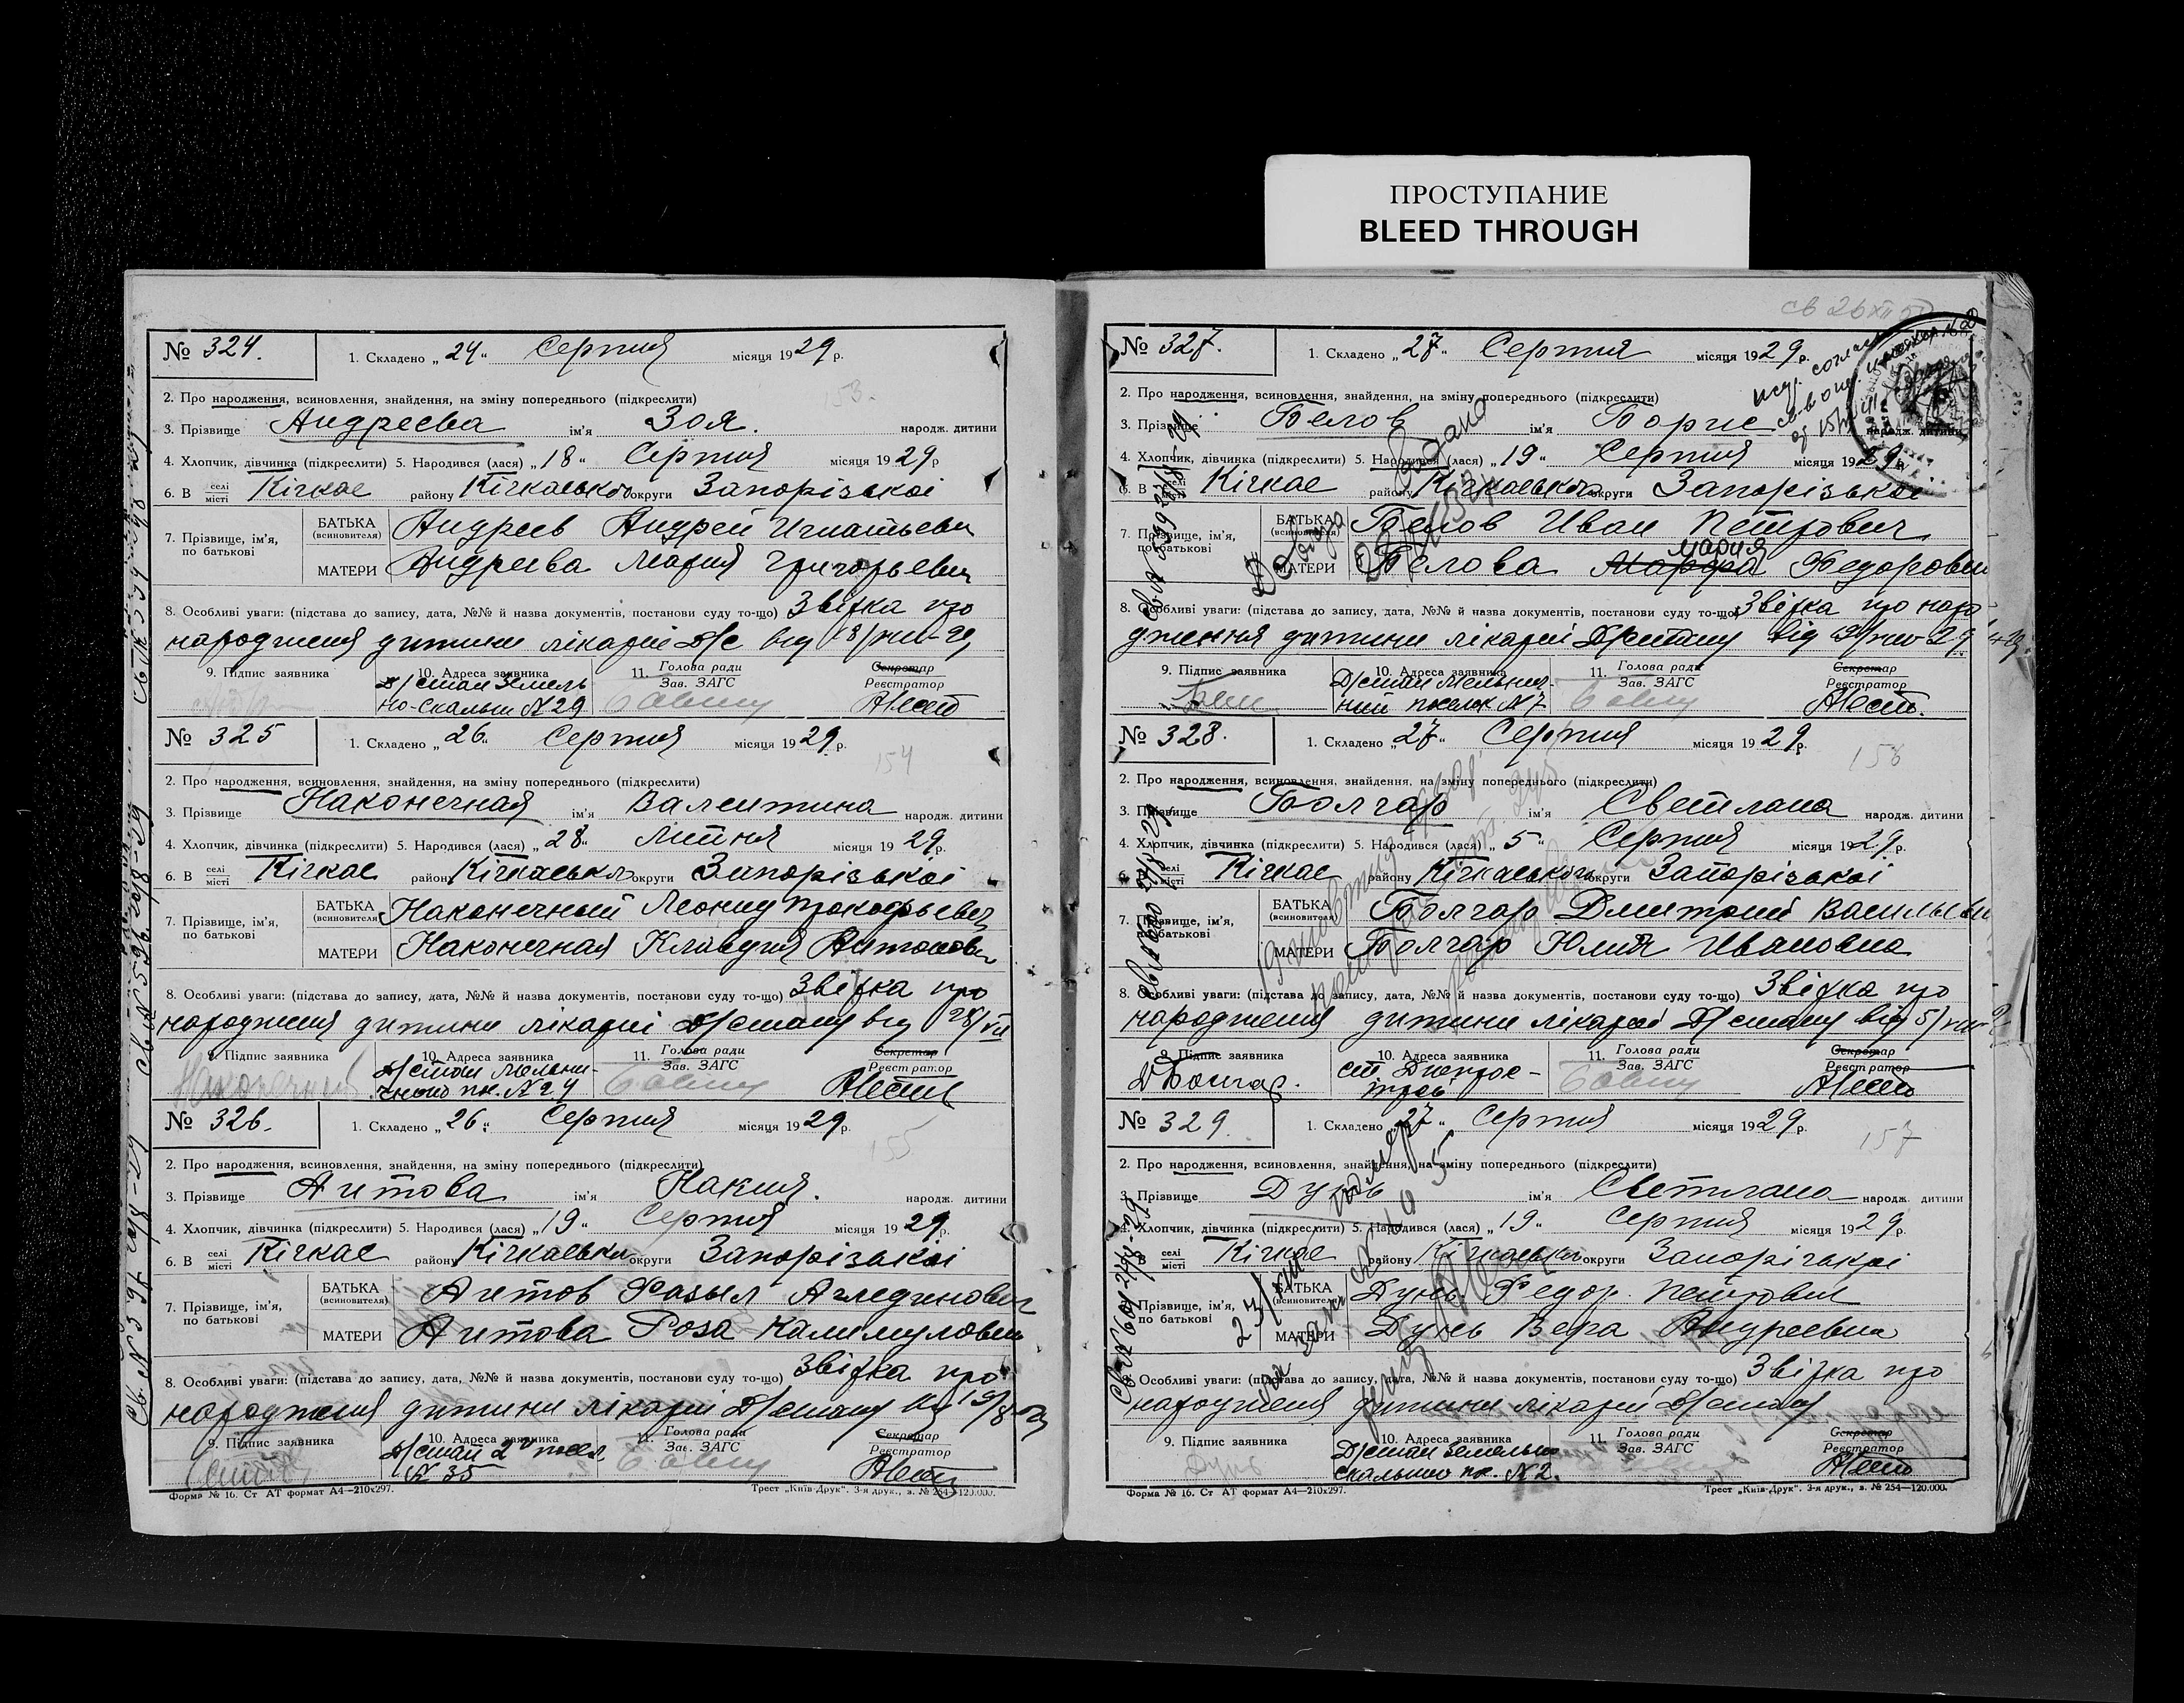 ПРОСТУПАНИЕ
BLEED THROUGH
№ 324.
1. Складено „ 24 “ Серпня місяця 1929 р.
2. Про народження, всиновлення, знайдення, на зміну попереднього (підкреслити)
153.
3. Прізвище Андреева ім'я Зоя. народж. дитини
4. Хлопчик, дівчинка (підкреслити) 5. Народився (лася) „ 18 “ Серпня місяця 1929 р
6. В селі місті Кічкас району Кічкаського округи Запорізькоі
7. Прізвище, ім'я, по батькові
БАТЬКА (всиновителя) Андреев Андрей Игнатьеви
МАТЕРИ Андреева Мария Григорьевн
8. Особливі уваги: (підстава до запису, дата, №№ й назва документів, постанови суду то-що) Звідка про
народження дитини лікарні Д/с від 18/VIII-29
9. Підпис заявника
10. Адреса заявника Д/стан Земель но-Скальн N 29
11. Голова ради Зав. ЗАГС
Секретар Реєстратор
№ 325
1. Складено „ 26 “ Серпня місяця 1929 р.
154
2. Про народження, всиновлення, знайдення, на зміну попереднього (підкреслити)
3. Прізвище Наконечная ім'я Валентина народж. дитини
4. Хлопчик, дівчинка (підкреслити) 5. Народився (лася) „ 28 “ Липня місяця 19 29 р.
6. В селі місті Кічкас району Кічкаськ округи Запорізькоі
7. Прізвище, ім'я, по батькові
БАТЬКА (всиновителя) Наконечный Леонид Прокофьевич
МАТЕРИ Наконечная Клавдия Антоновн
8. Особливі уваги: (підстава до запису, дата, №№ й назва документів, постанови суду то-що) Звідка про
народження дитини лікарні Д/стану від 28/VII
9. Підпис заявника
10. Адреса заявника Д/стан Мельни- чного пос. N 24
11. Голова ради Зав. ЗАГС
Секретар Реєстратор
№ 326.
1. Складено „ 26 “ Серпня місяця 1929 р.
155
2. Про народження, всиновлення, знайдення, на зміну попереднього (підкреслити)
3. Прізвище Аитова ім'я Накия. народж. дитини
4. Хлопчик, дівчинка (підкреслити) 5. Народився (лася) „ 19 “ Серпня місяця 19 29 р.
6. В селі місті Кічкас району Кічкаськ округи Запорізькоі
7. Прізвище, ім'я, по батькові
БАТЬКА (всиновителя) Аитов Фазыл Аглединович
МАТЕРИ Аитова Роза Калимуловн
8. Особливі уваги: (підстава до запису, дата, №№ й назва документів, постанови суду то-що) Звідка про
народження дитини лікарні Д/стану від 19/8
9. Підпис заявника
10. Адреса заявника Д/стан 2й посел. N 35
11. Голова ради Зав. ЗАГС
Секретар Реєстратор
Форма № 16. Ст АТ формат А4—210х297.
Трест „Київ-Друк“. 3-я друк., з. № 254—120.000.
№ 327.
1. Складено „ 27 “ Серпня місяця 1929 р.
2. Про народження, всиновлення, знайдення, на зміну попереднього (підкреслити)
3. Прізвище Белов ім'я Борис народж. дитини
4. Хлопчик, дівчинка (підкреслити) 5. Народився (лася) „ 19 “ Серпня місяця 1929 р.
6. В селі місті Кічкас району Кічкаського округи Запорізькоі
7. Прізвище, ім'я, по батькові
БАТЬКА (всиновителя) Белов Иван Петрович
МАТЕРИ Белова Марфа Мария Федоровн
8. Особливі уваги: (підстава до запису, дата, №№ й назва документів, постанови суду то-що) Звідка про наро
дження дитини лікарні Д/стану від 19/VIII 29
9. Підпис заявника
10. Адреса заявника Д/стан Мельнич- ний поселок N 7
11. Голова ради Зав. ЗАГС
Секретар Реєстратор
№ 328.
1. Складено „ 27 “ Серпня місяця 19 29 р.
156
2. Про народження, всиновлення, знайдення, на зміну попереднього (підкреслити)
3. Прізвище Болгар ім'я Светлана народж. дитини
4. Хлопчик, дівчинка (підкреслити) 5. Народився (лася) „ 5 “ Серпня місяця 1929 р.
6. В селі місті Кічкас району Кічкаського округи Запорізькоі
7. Прізвище, ім'я, по батькові
БАТЬКА (всиновителя) Болгар Дмитрий Васильеви
МАТЕРИ Болгар Юлия Ивановна
8. Особливі уваги: (підстава до запису, дата, №№ й назва документів, постанови суду то-що) Звідка про
народження дитини лікарні Д/стану від 5/VIII
9. Підпис заявника Д Болгар.
10. Адреса заявника ст. Днепрос- трой
11. Голова ради Зав. ЗАГС
Секретар Реєстратор
№ 329.
1. Складено „ 27 “ Серпня місяця 1929 р.
157
2. Про народження, всиновлення, знайдення, на зміну попереднього (підкреслити)
3. Прізвище Дунь ім'я Светлана народж. дитини
4. Хлопчик, дівчинка (підкреслити) 5. Народився (лася) „ 19 “ Серпня місяця 1929 р.
6. В селі місті Кічкас району Кічкаськ округи Запорізькоі
7. Прізвище, ім'я, по батькові
БАТЬКА (всиновителя) Дунь Федор Петрович
МАТЕРИ Дунь Вера Андреевна
8. Особливі уваги: (підстава до запису, дата, №№ й назва документів, постанови суду то-що) Звідка про
народження дитини лікарні Д/стану
9. Підпис заявника Дунь
10. Адреса заявника Д/стан Земельно скальний пос. N 2.
11. Голова ради Зав. ЗАГС
Секретар Реєстратор
Форма № 16. Ст АТ формат А4—210х297.
Трест „Київ-Друк“. 3-я друк., з. № 254—120.000.